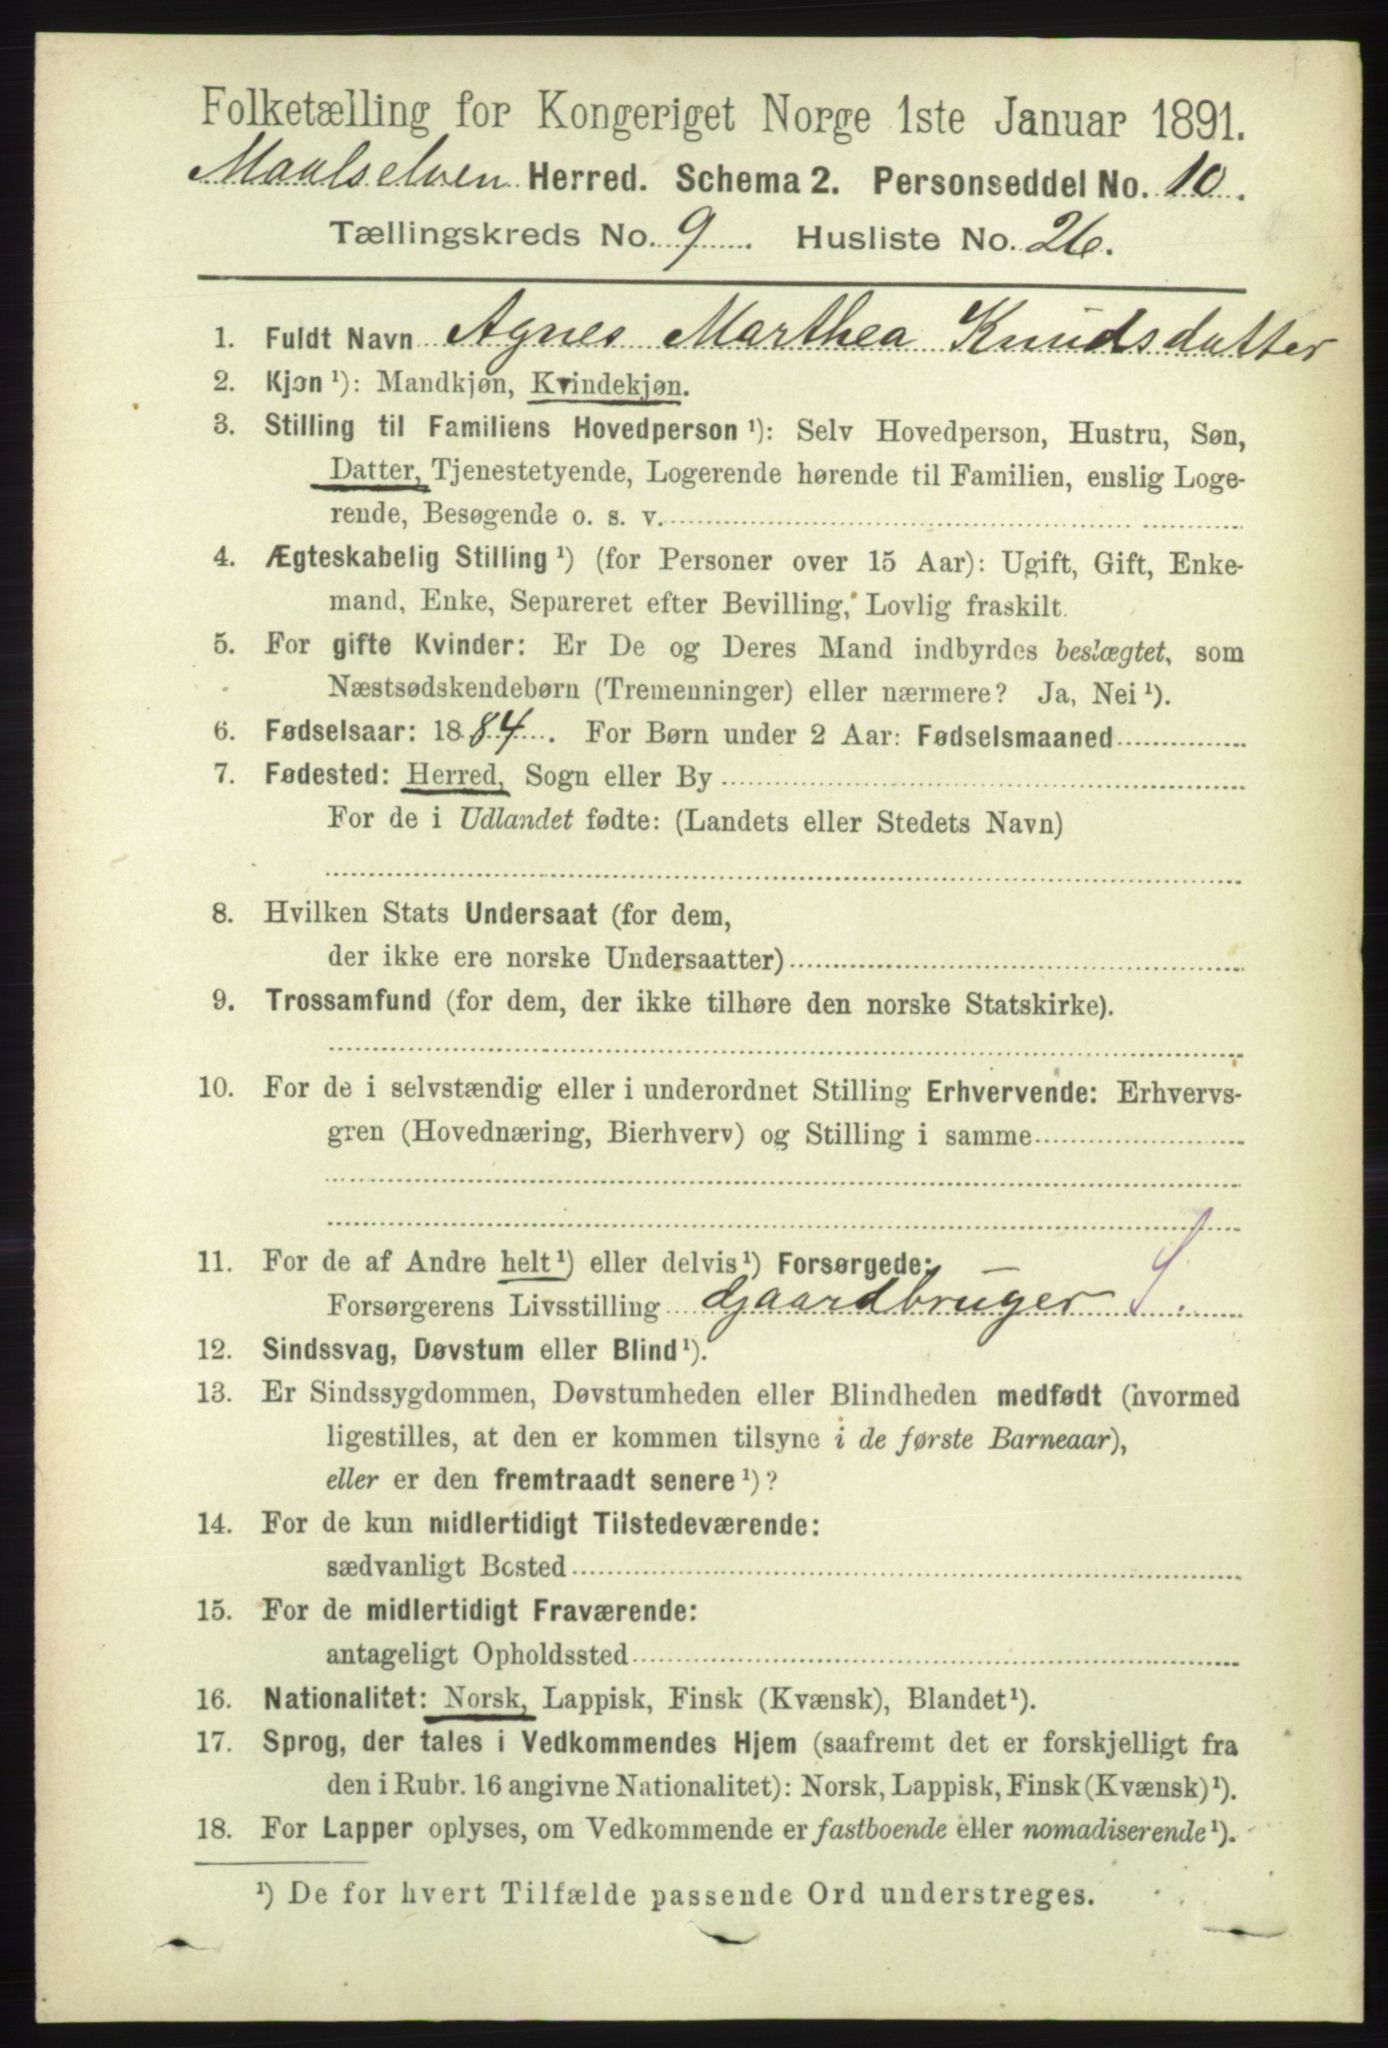 Folketælling for Kongeriget Norge 1ste Januar 1891.
Maalselven Herred. Schema 2. Personseddel No. 10.
Tællingskreds No. 9. Husliste No. 26.
1. Fuldt Navn Agnes Marthea Knudsdatter
2. Kjøn ¹): Mandkjøn, Kvindekjøn.
3. Stilling til Familiens Hovedperson ¹): Selv Hovedperson, Hustru, Søn,
Datter, Tjenestetyende, Logerende hørende til Familien, enslig Loge-
rende, Besøgende o. s. v.
4. Ægteskabelig Stilling ¹) (for Personer over 15 Aar): Ugift, Gift, Enke-
mand, Enke, Separeret efter Bevilling, Lovlig fraskilt.
5. For gifte Kvinder: Er De og Deres Mand indbyrdes beslægtet, som
Næstsødskendebørn (Tremenninger) eller nærmere? Ja, Nei ¹).
6. Fødselsaar: 1884. For Børn under 2 Aar: Fødselsmaaned
7. Fødested: Herred, Sogn eller By
For de i Udlandet fødte: (Landets eller Stedets Navn)
8. Hvilken Stats Undersaat (for dem,
der ikke ere norske Undersaatter)
9. Trossamfund (for dem, der ikke tilhøre den norske Statskirke).
10. For de i selvstændig eller i underordnet Stilling Erhvervende: Erhvervs-
gren (Hovednæring, Bierhverv) og Stilling i samme
11. For de af Andre helt ¹) eller delvis ¹) Forsørgede:
Forsørgerens Livsstilling Gaardbruger S.
12. Sindssvag, Døvstum eller Blind ¹).
13. Er Sindssygdommen, Døvstumheden eller Blindheden medfødt (hvormed
ligestilles, at den er kommen tilsyne i de første Barneaar),
eller er den fremtraadt senere ¹)?
14. For de kun midlertidigt Tilstedeværende:
sædvanligt Bosted
15. For de midlertidigt Fraværende:
antageligt Opholdssted
16. Nationalitet: Norsk, Lappisk, Finsk (Kvænsk), Blandet ¹).
17. Sprog, der tales i Vedkommendes Hjem (saafremt det er forskjelligt fra
den i Rubr. 16 angivne Nationalitet): Norsk, Lappisk, Finsk (Kvænsk) ¹).
18. For Lapper oplyses, om Vedkommende er fastboende eller nomadiserende ¹).
¹) De for hvert Tilfælde passende Ord understreges.